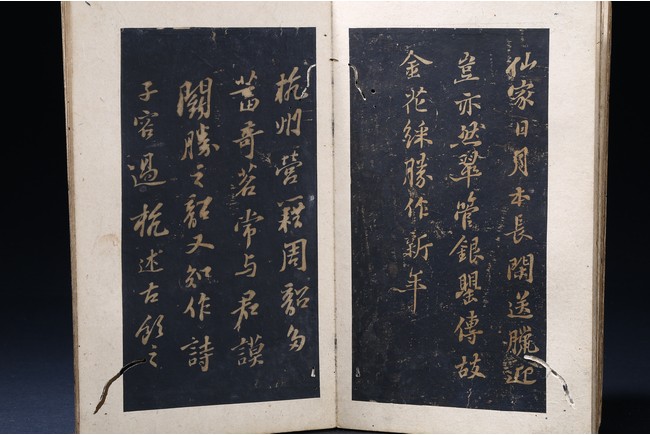 仙家日月本長閑送臘迎
豈亦然翠管銀罌傳故
金花綵勝作新年
杭州營籍周韶多
蓄奇茗常与君謨
鬭勝之韶又知作詩
子容過杭述古飲之